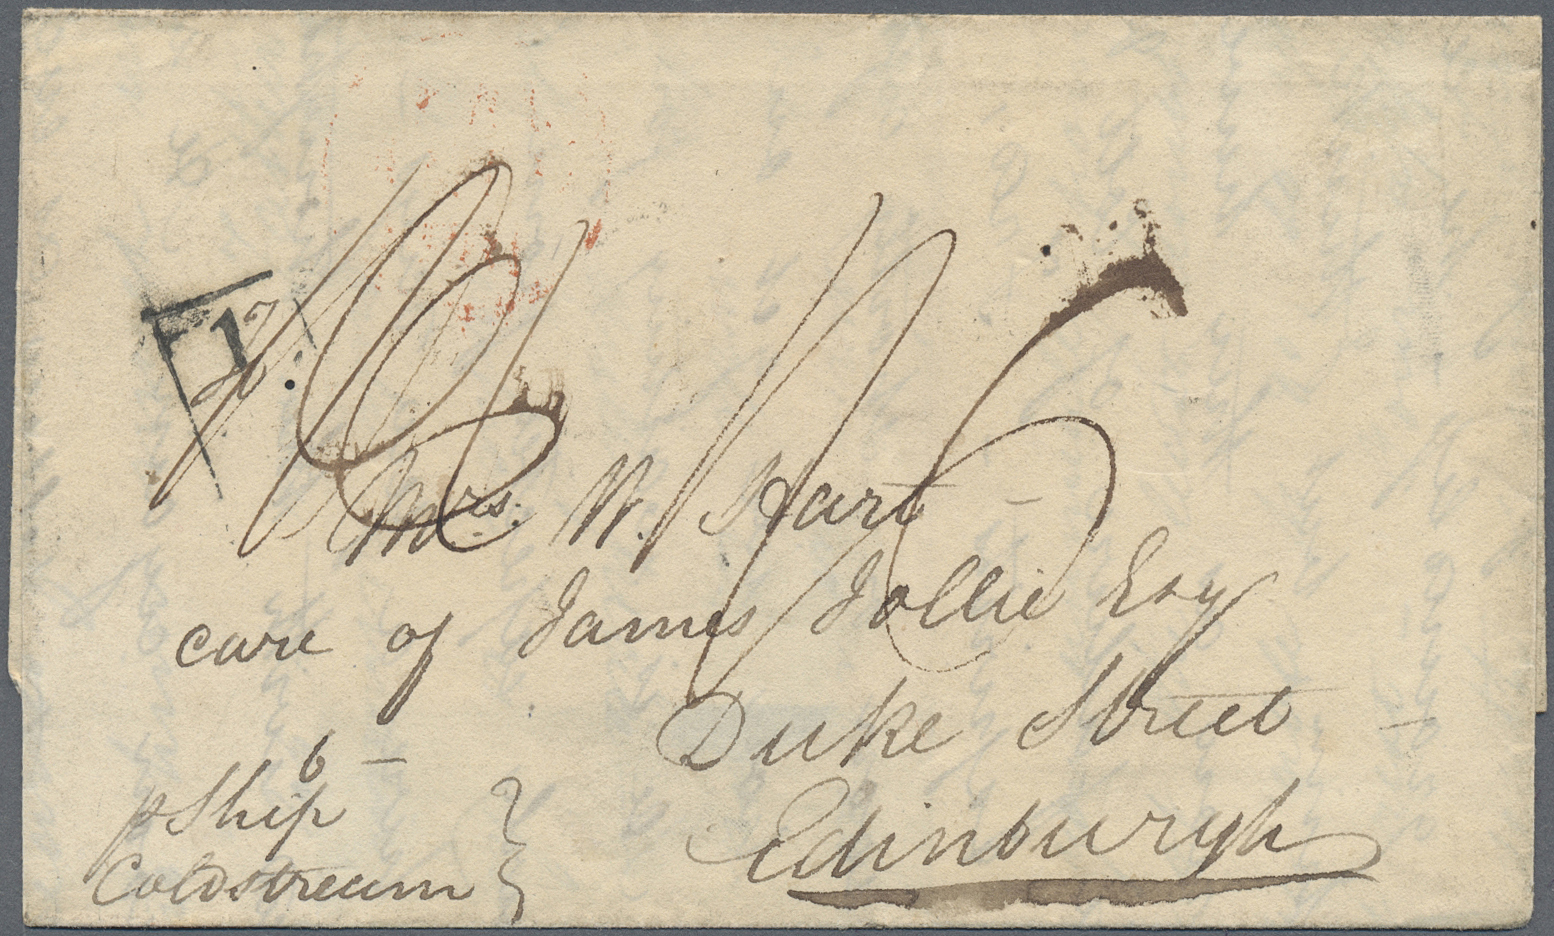 Mrs. W. Hart -
care of James Jollie Esq
Duke Street -
Edinburgh
6 -
p Ship
Coldstream